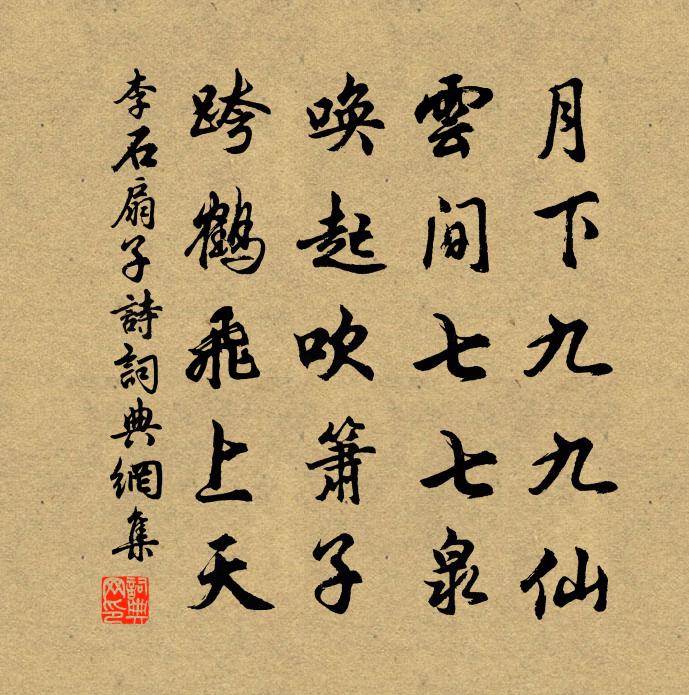 月下九九仙
雲間七七泉
喚起吹簫子
跨鶴飛上天
李石扇子詩詞典網集
詞典網印